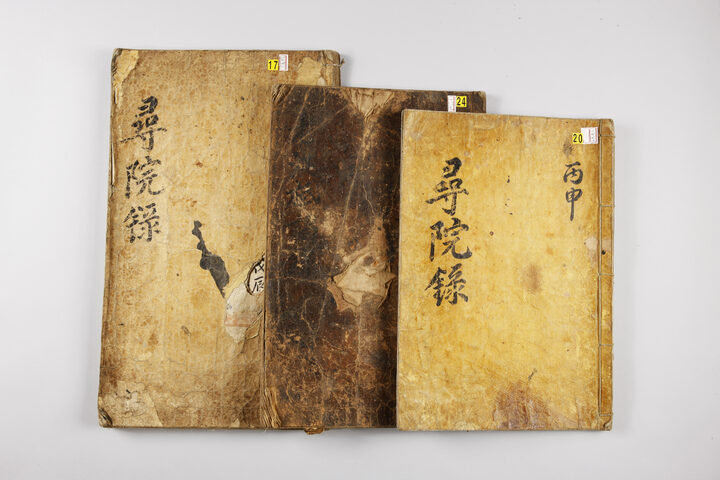 17
尋院錄
戊辰
24
20
丙申
尋院錄